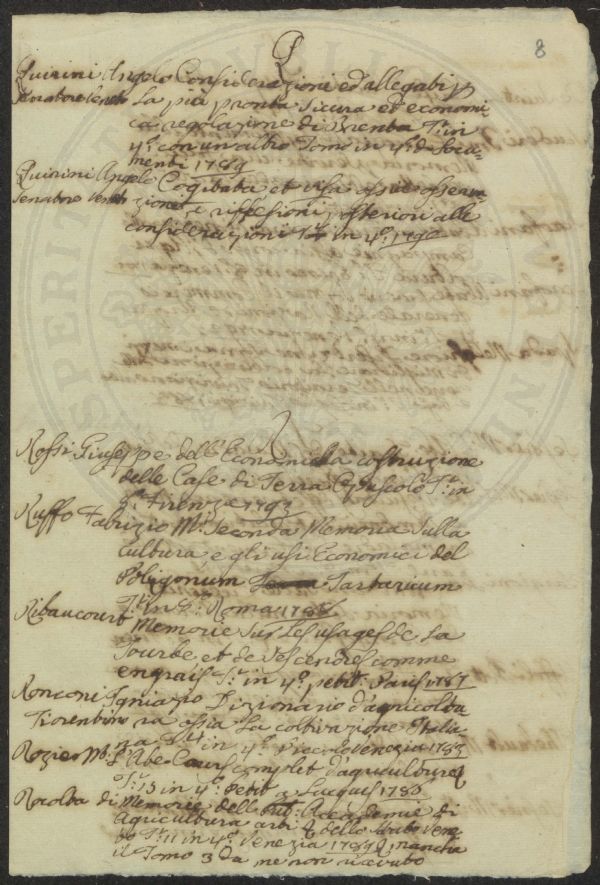 8
Q
Quirini Angelo Considerazioni ed allegati p
Senatore Veneto La più pronta sicura ed economi
ca regolazione di Brenta T: in
4º: con un altro Tomo in 4º: di Docu-
menti 1789
Quirini Angelo Cogitata et visa ossia osserva
Senatore Veneto zioni, e riflessioni posteriori alle
considerazioni in 4º: 1790
R
Rossi Giuseppe dell'Economica costruzione
delle Case di Terra Opuscolo T: in
8º: Firenze 1793
Ruffo Fabrizio M: Seconda Memoria sulla
Cultura, e gli usi Economici del
Poligonum Tartaricum
T: in 8º: Roma
Ribaucourt Memoire sur les usages de La
Tourbe et de ses cendres comme
engrais T: in 4º: petit: Paris 1787
Ronconi Ignazio Dizionario d'agricoltu
Fiorentino ra ossia La coltivazione Italia
na in 4º: Piccolo Venezia 1783
Rozier M: L'Abe Cours complet d'agriculture
T: in 4º: Petit
Racolta di Memorie delle Pub: Accademie di
Agricultura arti dello Stato Vene
to T: 11 in 4º: Venezia 1789 manca
il Tomo 3 da me non ricevuto